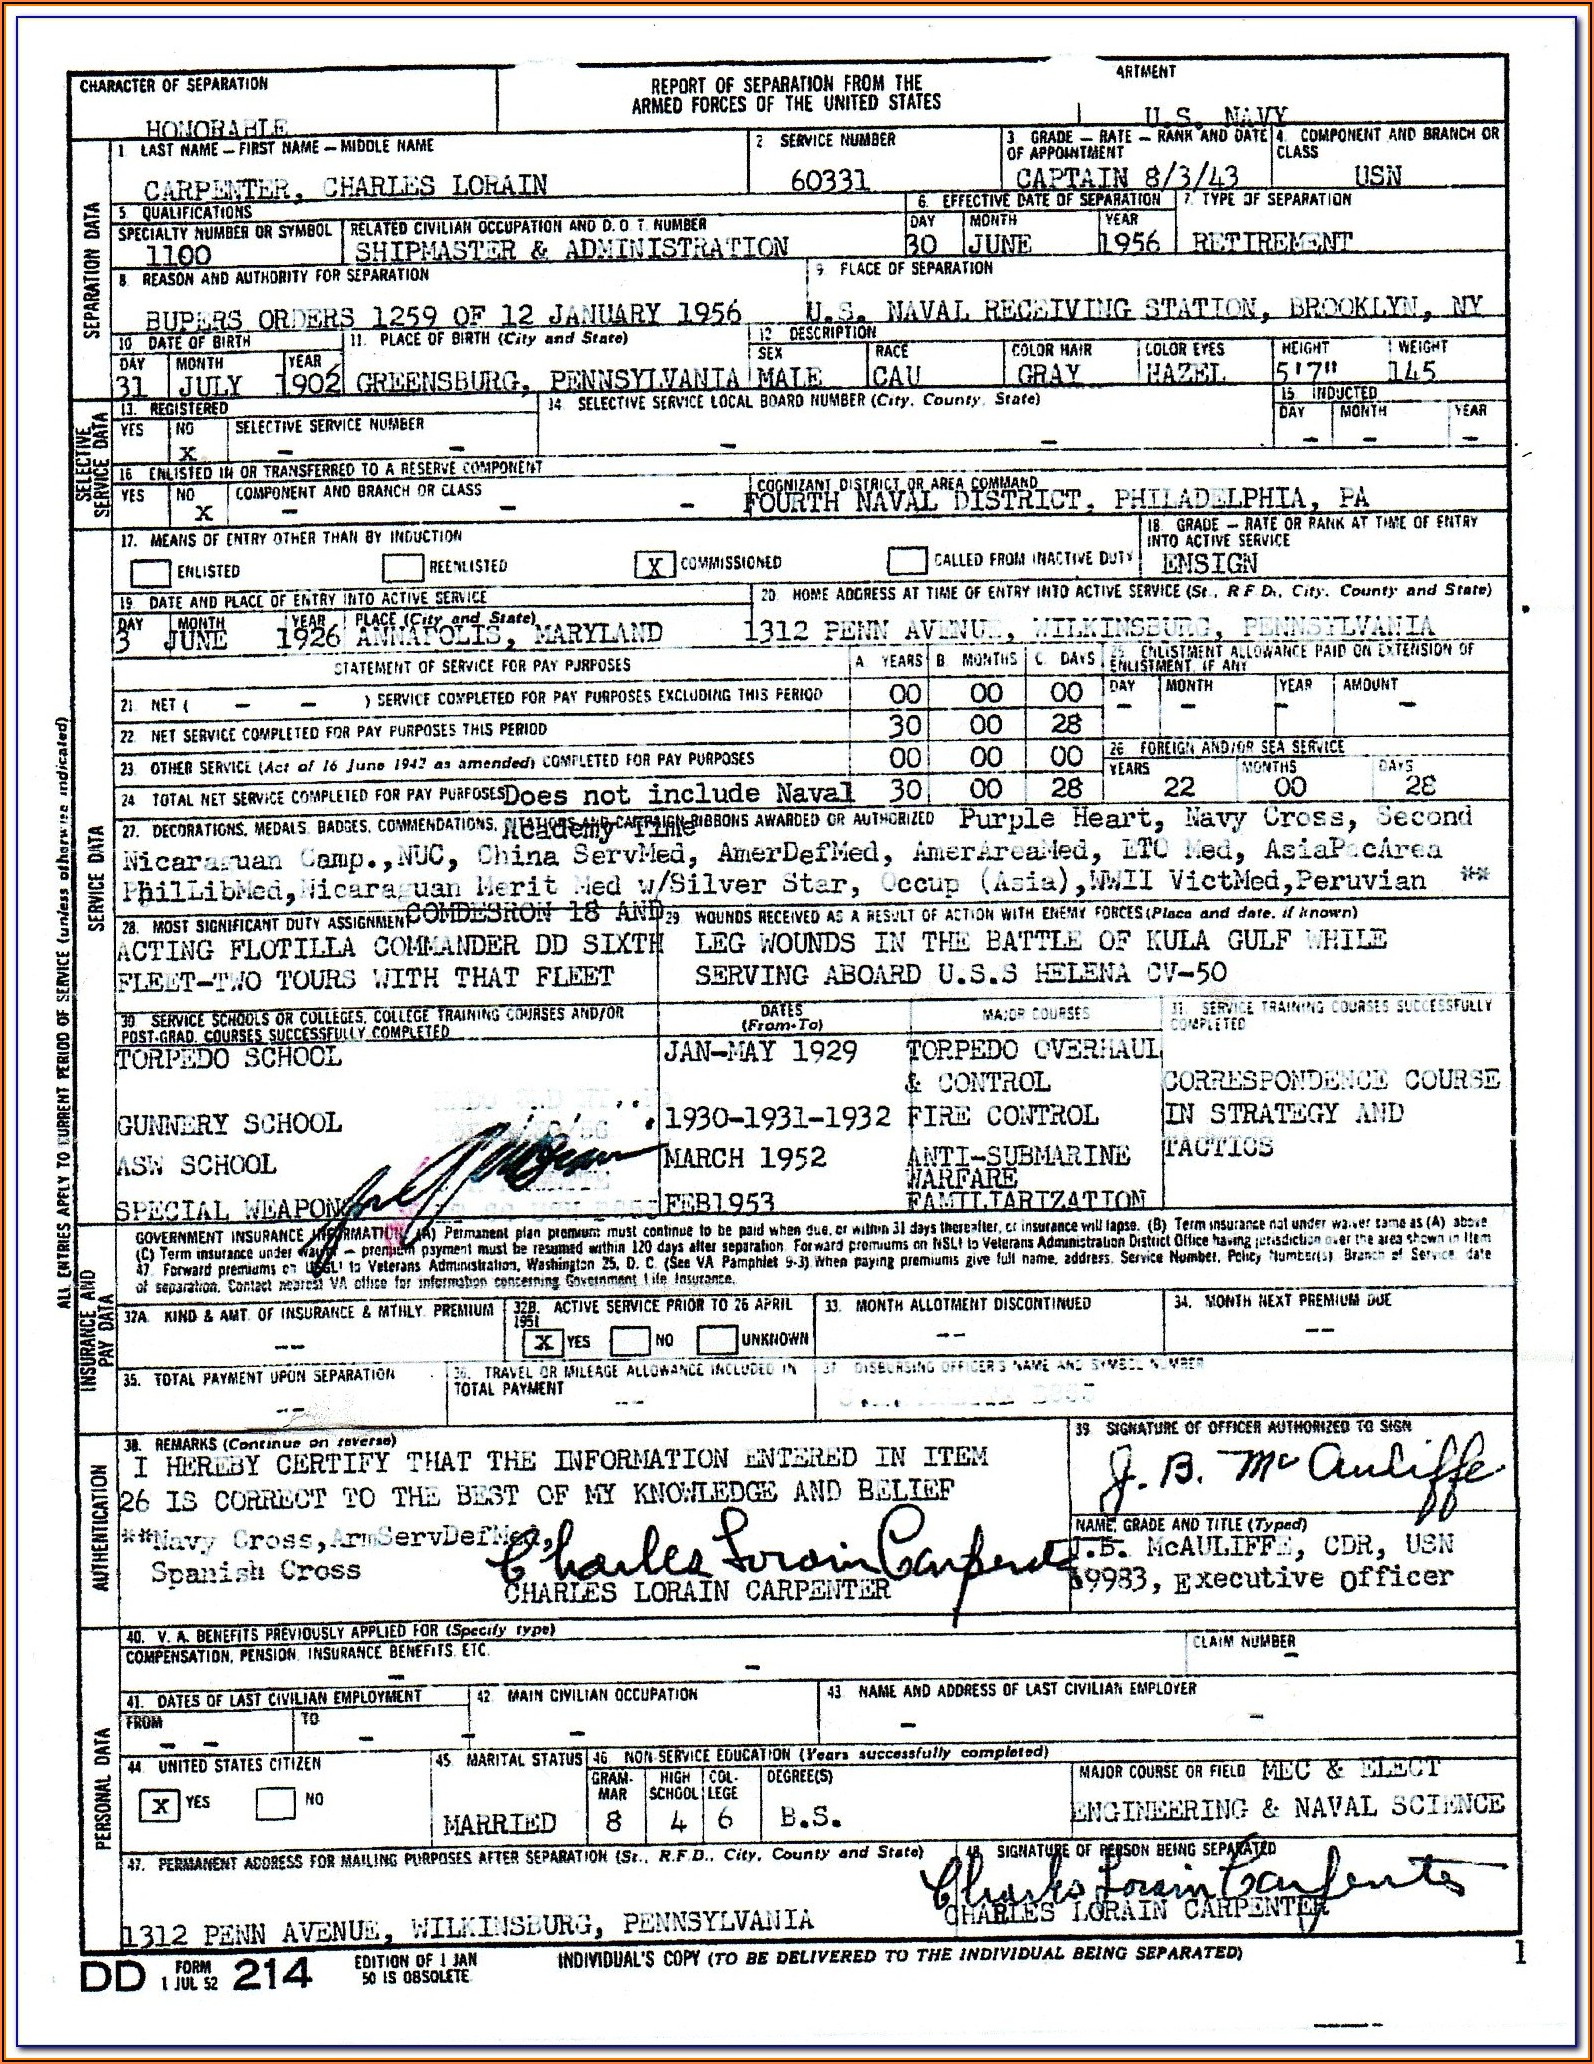 CHARACTER OF SEPARATION
HONORABLE
REPORT OF SEPARATION FROM THE
ARMED FORCES OF THE UNITED STATES
ARTMENT
U.S. NAVY
1 LAST NAME – FIRST NAME – MIDDLE NAME
CARPENTER, CHARLES LORAIN
2 SERVICE NUMBER
60331
3 GRADE – RATE – RANK AND DATE
OF APPOINTMENT
CAPTAIN 8/3/43
4. COMPONENT AND BRANCH OR
CLASS
USN
SEPARATION DATA
5. QUALIFICATIONS
SPECIALTY NUMBER OR SYMBOL
1100
RELATED CIVILIAN OCCUPATION AND D. O. T. NUMBER
SHIPMASTER & ADMINISTRATION
6. EFFECTIVE DATE OF SEPARATION
DAY MONTH YEAR
30 JUNE 1956
7. TYPE OF SEPARATION
RETIREMENT
8 REASON AND AUTHORITY FOR SEPARATION
BUPERS ORDERS 1259 OF 12 JANUARY 1956
9. PLACE OF SEPARATION
U.S. NAVAL RECEIVING STATION, BROOKLYN, NY
10 DATE OF BIRTH
DAY MONTH YEAR
31 JULY 1902
11. PLACE OF BIRTH (City and State)
GREENSBURG, PENNSYLVANIA
12 DESCRIPTION
SEX RACE COLOR HAIR COLOR EYES HEIGHT WEIGHT
MALE CAU GRAY HAZEL 5'7" 145
SELECTIVE
SERVICE DATA
13. REGISTERED
YES NO SELECTIVE SERVICE NUMBER
X – –
14 SELECTIVE SERVICE LOCAL BOARD NUMBER (City, County, State)
– –
15 INDUCTED
DAY MONTH YEAR
– – –
16 ENLISTED IN OR TRANSFERRED TO A RESERVE COMPONENT
YES NO COMPONENT AND BRANCH OR CLASS
X – – –
COGNIZANT DISTRICT OR AREA COMMAND
FOURTH NAVAL DISTRICT, PHILADELPHIA, PA
17. MEANS OF ENTRY OTHER THAN BY INDUCTION
ENLISTED REENLISTED X COMMISSIONED CALLED FROM INACTIVE DUTY
18 GRADE – RATE OR RANK AT TIME OF ENTRY
INTO ACTIVE SERVICE
ENSIGN
19 DATE AND PLACE OF ENTRY INTO ACTIVE SERVICE
DAY MONTH YEAR PLACE (City and State)
3 JUNE 1926 ANNAPOLIS, MARYLAND
20. HOME ADDRESS AT TIME OF ENTRY INTO ACTIVE SERVICE (St., R F D., City, County and State)
1312 PENN AVENUE, WILKINSBURG, PENNSYLVANIA
ALL ENTRIES APPLY TO CURRENT PERIOD OF SERVICE (unless otherwise indicated)
SERVICE DATA
STATEMENT OF SERVICE FOR PAY PURPOSES
A. YEARS B. MONTHS C. DAYS
21. NET ( – – ) SERVICE COMPLETED FOR PAY PURPOSES EXCLUDING THIS PERIOD 00 00 00
22 NET SERVICE COMPLETED FOR PAY PURPOSES THIS PERIOD 30 00 28
23. OTHER SERVICE (Act of 16 June 1942 as amended) COMPLETED FOR PAY PURPOSES 00 00 00
24 TOTAL NET SERVICE COMPLETED FOR PAY PURPOSES Does not include Naval 30 00 28
Academy Time
25 ENLISTMENT ALLOWANCE PAID ON EXTENSION OF
ENLISTMENT, IF ANY
DAY MONTH YEAR AMOUNT
– – – –
26 FOREIGN AND/OR SEA SERVICE
YEARS MONTHS DAYS
22 00 28
27. DECORATIONS, MEDALS, BADGES, COMMENDATIONS, CITATIONS AND CAMPAIGN RIBBONS AWARDED OR AUTHORIZED Purple Heart, Navy Cross, Second
Nicaraguan Camp.,NUC, China ServMed, AmerDefMed, AmerAreaMed, ETO Med, AsiaPacArea
PhilLibMed,Nicaraguan Merit Med w/Silver Star, Occup (Asia),WWII VictMed,Peruvian **
28. MOST SIGNIFICANT DUTY ASSIGNMENT COMDESRON 18 AND
ACTING FLOTILLA COMMANDER DD SIXTH
FLEET-TWO TOURS WITH THAT FLEET
29 WOUNDS RECEIVED AS A RESULT OF ACTION WITH ENEMY FORCES (Place and date, if known)
LEG WOUNDS IN THE BATTLE OF KULA GULF WHILE
SERVING ABOARD U.S.S HELENA CV-50
30 SERVICE SCHOOLS OR COLLEGES, COLLEGE TRAINING COURSES AND/OR
POST-GRAD. COURSES SUCCESSFULLY COMPLETED
DATES
(From-To)
MAJOR COURSES
31. SERVICE TRAINING COURSES SUCCESSFULLY
COMPLETED
TORPEDO SCHOOL JAN-MAY 1929 TORPEDO OVERHAUL
& CONTROL
GUNNERY SCHOOL 1930-1931-1932 FIRE CONTROL
ASW SCHOOL MARCH 1952 ANTI-SUBMARINE
WARFARE
SPECIAL WEAPONS FEB1953 FAMILIARIZATION
CORRESPONDENCE COURSE
IN STRATEGY AND
TACTICS
INSURANCE AND
PAY DATA
GOVERNMENT INSURANCE INFORMATION (A) Permanent plan premium must continue to be paid when due, or within 31 days thereafter, or insurance will lapse. (B) Term insurance not under waiver same as (A) above
(C) Term insurance under waiver – premium payment must be resumed within 120 days after separation. Forward premiums on NSLI to Veterans Administration District Office having jurisdiction over the area shown in Item
47. Forward premiums on USGLI to Veterans Administration, Washington 25, D. C. (See VA Pamphlet 9-3) When paying premiums give full name, address, Service Number, Policy Number(s), Branch of Service, date
of separation. Contact nearest VA office for information concerning Government Life Insurance.
32A. KIND & AMT. OF INSURANCE & MTHLY. PREMIUM
--
32B. ACTIVE SERVICE PRIOR TO 26 APRIL
1951
X YES NO UNKNOWN
33. MONTH ALLOTMENT DISCONTINUED
--
34. MONTH NEXT PREMIUM DUE
--
35. TOTAL PAYMENT UPON SEPARATION
--
36. TRAVEL OR MILEAGE ALLOWANCE INCLUDED IN
TOTAL PAYMENT
--
37 DISBURSING OFFICER'S NAME AND SYMBOL NUMBER
AUTHENTICATION
38. REMARKS (Continue on reverse)
I HEREBY CERTIFY THAT THE INFORMATION ENTERED IN ITEM
26 IS CORRECT TO THE BEST OF MY KNOWLEDGE AND BELIEF
**Navy Cross,ArmServDefMed,
Spanish Cross
Charles Lorain Carpenter
CHARLES LORAIN CARPENTER
39 SIGNATURE OF OFFICER AUTHORIZED TO SIGN
J. B. McAuliffe
NAME, GRADE AND TITLE (Typed)
J.B. McAULIFFE, CDR, USN
9983, Executive Officer
PERSONAL DATA
40. V. A. BENEFITS PREVIOUSLY APPLIED FOR (Specify type)
COMPENSATION, PENSION, INSURANCE BENEFITS, ETC.
– –
CLAIM NUMBER
–
41. DATES OF LAST CIVILIAN EMPLOYMENT
FROM TO
– – – –
42 MAIN CIVILIAN OCCUPATION
–
43 NAME AND ADDRESS OF LAST CIVILIAN EMPLOYER
– –
44 UNITED STATES CITIZEN
X YES NO
45 MARITAL STATUS
MARRIED
46. NON-SERVICE EDUCATION (Years successfully completed)
GRAM-
MAR
8
HIGH
SCHOOL
4
COL-
LEGE
6
DEGREE(S)
B.S.
MAJOR COURSE OR FIELD MEC & ELECT
ENGINEERING & NAVAL SCIENCE
47. PERMANENT ADDRESS FOR MAILING PURPOSES AFTER SEPARATION (St., R.F.D., City, County and State)
1312 PENN AVENUE, WILKINSBURG, PENNSYLVANIA
48 SIGNATURE OF PERSON BEING SEPARATED
Charles Lorain Carpenter
CHARLES LORAIN CARPENTER
DD FORM 1 JUL 52 214
EDITION OF 1 JAN
50 IS OBSOLETE
INDIVIDUAL'S COPY (TO BE DELIVERED TO THE INDIVIDUAL BEING SEPARATED)
1